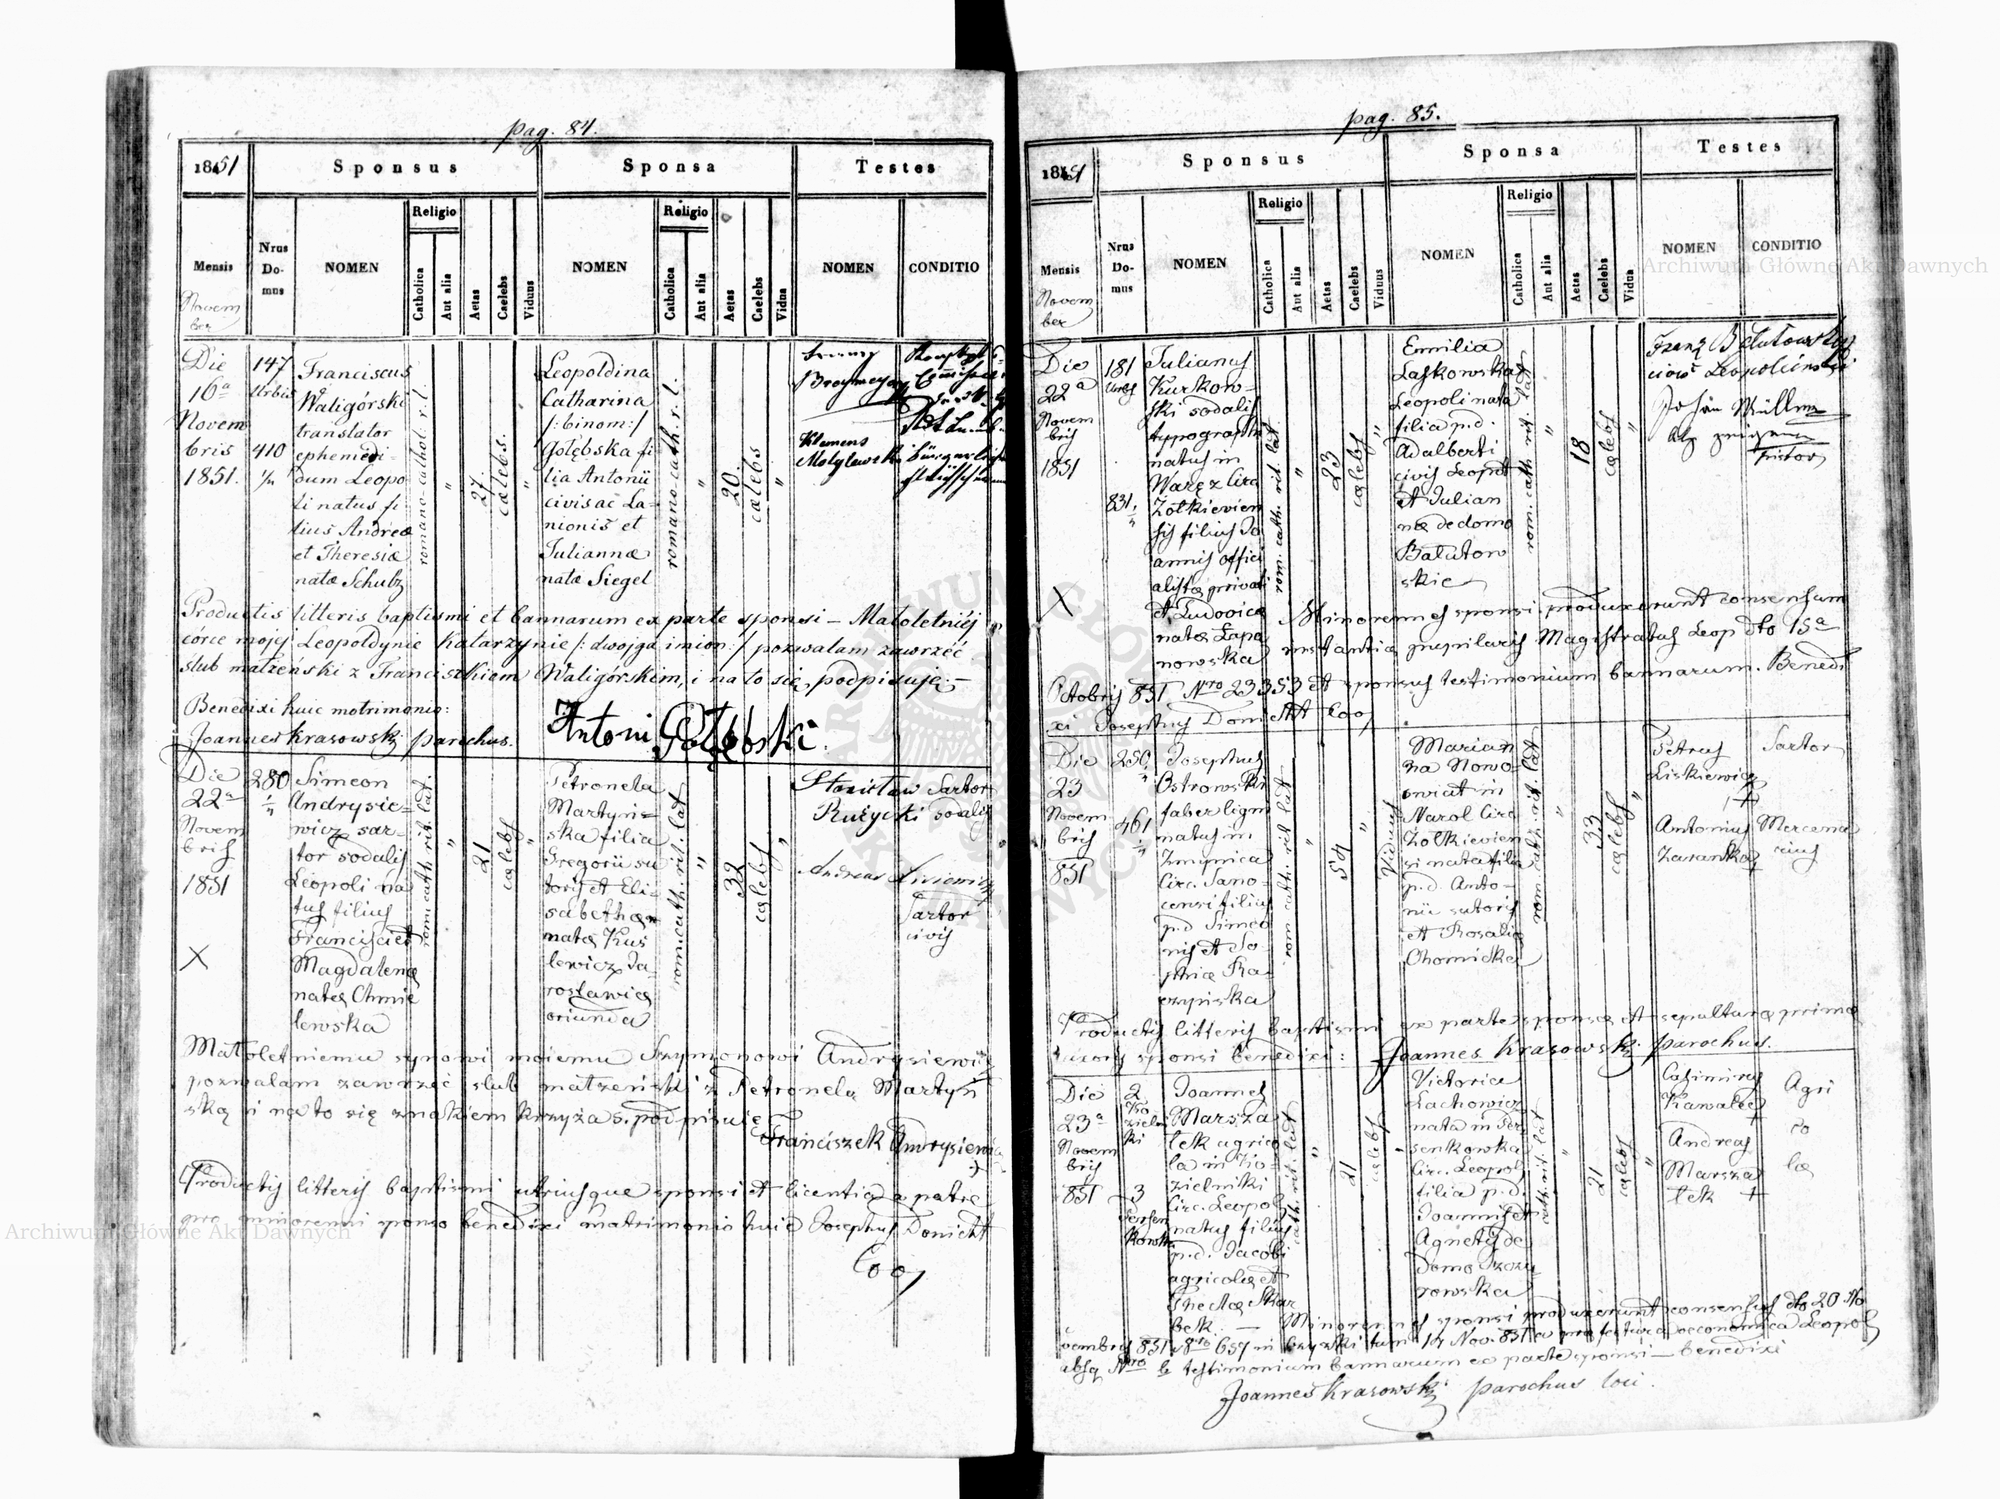 pag. 84.
1851
Sponsus
Sponsa
Testes
Mensis
Novem
ber
Nrus
Do-
mus
NOMEN
Religio
Catholica
Aut alia
Aetas
Caelebs
Viduus
NOMEN
Religio
Catholica
Aut alia
Aetas
Caelebs
Vidua
NOMEN
CONDITIO
Die
16a
Novem
bris
1851.
147
Urbis
410
Franciscus
Waligórski
translator
ephemeri-
dum Leopo
li natus fi
lius Andreæ
et Theresiæ
natæ Schulz
romano-cathol: r. l.
"
27.
cælebs.
"
Leopoldina
Catharina
/:binom:/
Gołębska fi
lia Antonii
civis ac La-
nionis et
Juliannæ
natæ Siegel
romano-cath. r. l.
"
20.
cælebs
"
Klemens
Productis litteris baptismi et bannarum ex parte sponsi – Małoletniéj
córce mojej Leopoldynie Katarzynie /: dwojga imion:/ pozwalam zawrzéć
ślub małżeński z Franciszkiem Waligórskim, i na to się podpisuję –
Benedixi huic matrimonio:
Joannes Krasowski parochus.
Antoni Gołębski.
Die
22a
Novem
bris
1851
X
280
Simeon
Andrysie-
wicz sar-
tor sodalis
Leopoli na
tus filius
Francisci et
Magdalenæ
natæ Chmie
lewska
rom cath. rit. lat.
"
21
cælebs
"
Petronela
Martyni-
ska filia
Gregorii su
toris et Eli-
sabethæ
natæ Kus
lewicz Ja
roslawiæ
oriunda
rom: cath. rit. lat
"
32
cælebs
"
Stanisław Sartor
Rużycki sodalis
Andreas
Sartor
civis
Małoletniemu synowi moiemu Szymonowi Andrysiewi
pozwalam zawrzéć ślub małżeński z Petronelą Martyń
ską i na to się znakiem krzyża s. podpisuję
Franciszek Andrysiewi
Productis litteris baptismi utriusque sponsi et licentia a patre
pro minorenni sponso benedixi matrimonio huic Josephus Donicht
Coop
pag. 85.
1851
Sponsus
Sponsa
Testes
Mensis
Novem
ber
Nrus
Do-
mus
NOMEN
Religio
Catholica
Aut alia
Aetas
Caelebs
Viduus
NOMEN
Religio
Catholica
Aut alia
Aetas
Caelebs
Vidua
NOMEN
CONDITIO
Die
22a
Novem
bris
1851
X
181
Urbis
831
Julianus
Kurkow-
ski sodalis
typograph
natus in
Waręz Circ
Zołkiewien
sis filius Jo
annis offici
alistæ privati
et Ludovicæ
natæ Łapa
nowska
rom. cath. rit. lat.
"
23
cælebs
"
Emilia
Laskowska
Leopoli nata
filia p.d.
Adalberti
civis Leopol
et Julian
næ de domo
Bałutow
skie
rom. cath. rit. lat
"
18
cælebs
"
Franz Bałutowsky
Johan Müller
Pistor
Minorennes sponsi produxerunt consensum
instantiæ pupilaris Magistratus Leop dto 15a
Octobris 851 Nro 23353 et sponsus testimonium bannarum. Benedi
xi Josephus Donicht Coop
Die
23
Novem
bris
851
250
461
Josephus
Ostrowski
faber lign
natus in
Zmynica
Circ. Sano-
censi filius
p.d Simeo
nis et So-
phiæ Ra
czyńska
rom cath. rit lat
"
54
"
Viduus
Marian
na Nowo-
swiat in
Narol Circ
Zołkiewien
si nata filia
p.d. Anto-
nii sutoris
et Rosaliæ
Chomicka
rom. cath. rit. lat
"
33
cælebs
"
Petrus
Liskiewicz
+
Sartor
Antonius
Zaranka
Mercena
rius
Productis litteris baptismi ex parte sponsæ et sepulturæ primæ
uxoris sponsi benedixi: Joannes Krasowski parochus.
Die
23a
Novem
bris
851
2
Ko
zielni
ki
3
Joannes
Marsza
łek agrico
la in Ko-
zielniki
Circ. Leopol
natus filius
p.d. Jacobi
agricolæ et
Theclæ Skar
bek. —
cath. rit. lat
"
21
cælebs
Victoria
Lachowicz
nata in Per
senkowka
Circ. Leopol
filia p.d.
Joannis et
Agnetis de
domo Szczu
rowska
cath. rit. lat
"
21
cælebs
"
Casimirus
Kawalec
Andreas
Marsza
łek +
Agri
co
læ
Minorennes sponsi produxerunt consensus dto 20 No
vembris 851 Nro 659 in 14 Nov. 851 a præfectura oeconomica Leopol
absq Nro & testimonium bannarum ex parte sponsi – benedixi
Joannes Krasowski parochus loci.
Archiwum Główne Akt Dawnych
Archiwum Główne Akt Dawnych